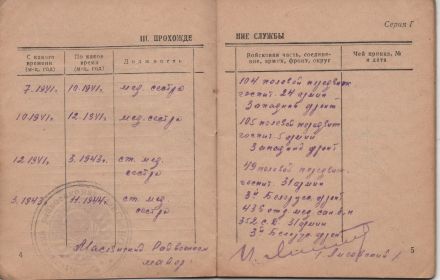 Серия Г
III. ПРОХОЖДЕ
НИЕ СЛУЖБЫ
С какого времени (м-ц, год)
По какое время (м-ц, год)
Должность
Войсковая часть, соединение, армия, фронт, округ
Чей приказ, № и дата
7.1941г. 10.1941г. мед. сестра
104 полевой
госпит. 24 армии
Западный фронт
10.1941г. 12.1941г. мед. сестра
105 полевой
госпит. 5 армии
Западный фронт
12.1941г. 3.1943г. ст. мед. сестра
49 полевой
госпит. 31 армии
3й Белорус. фронт
3.1943г. 11.1944г. ст. мед. сестра
435 отд. мед. сан. б-н
352 с.д. 31 армии
3й Белорус. фронт
майор
4
5